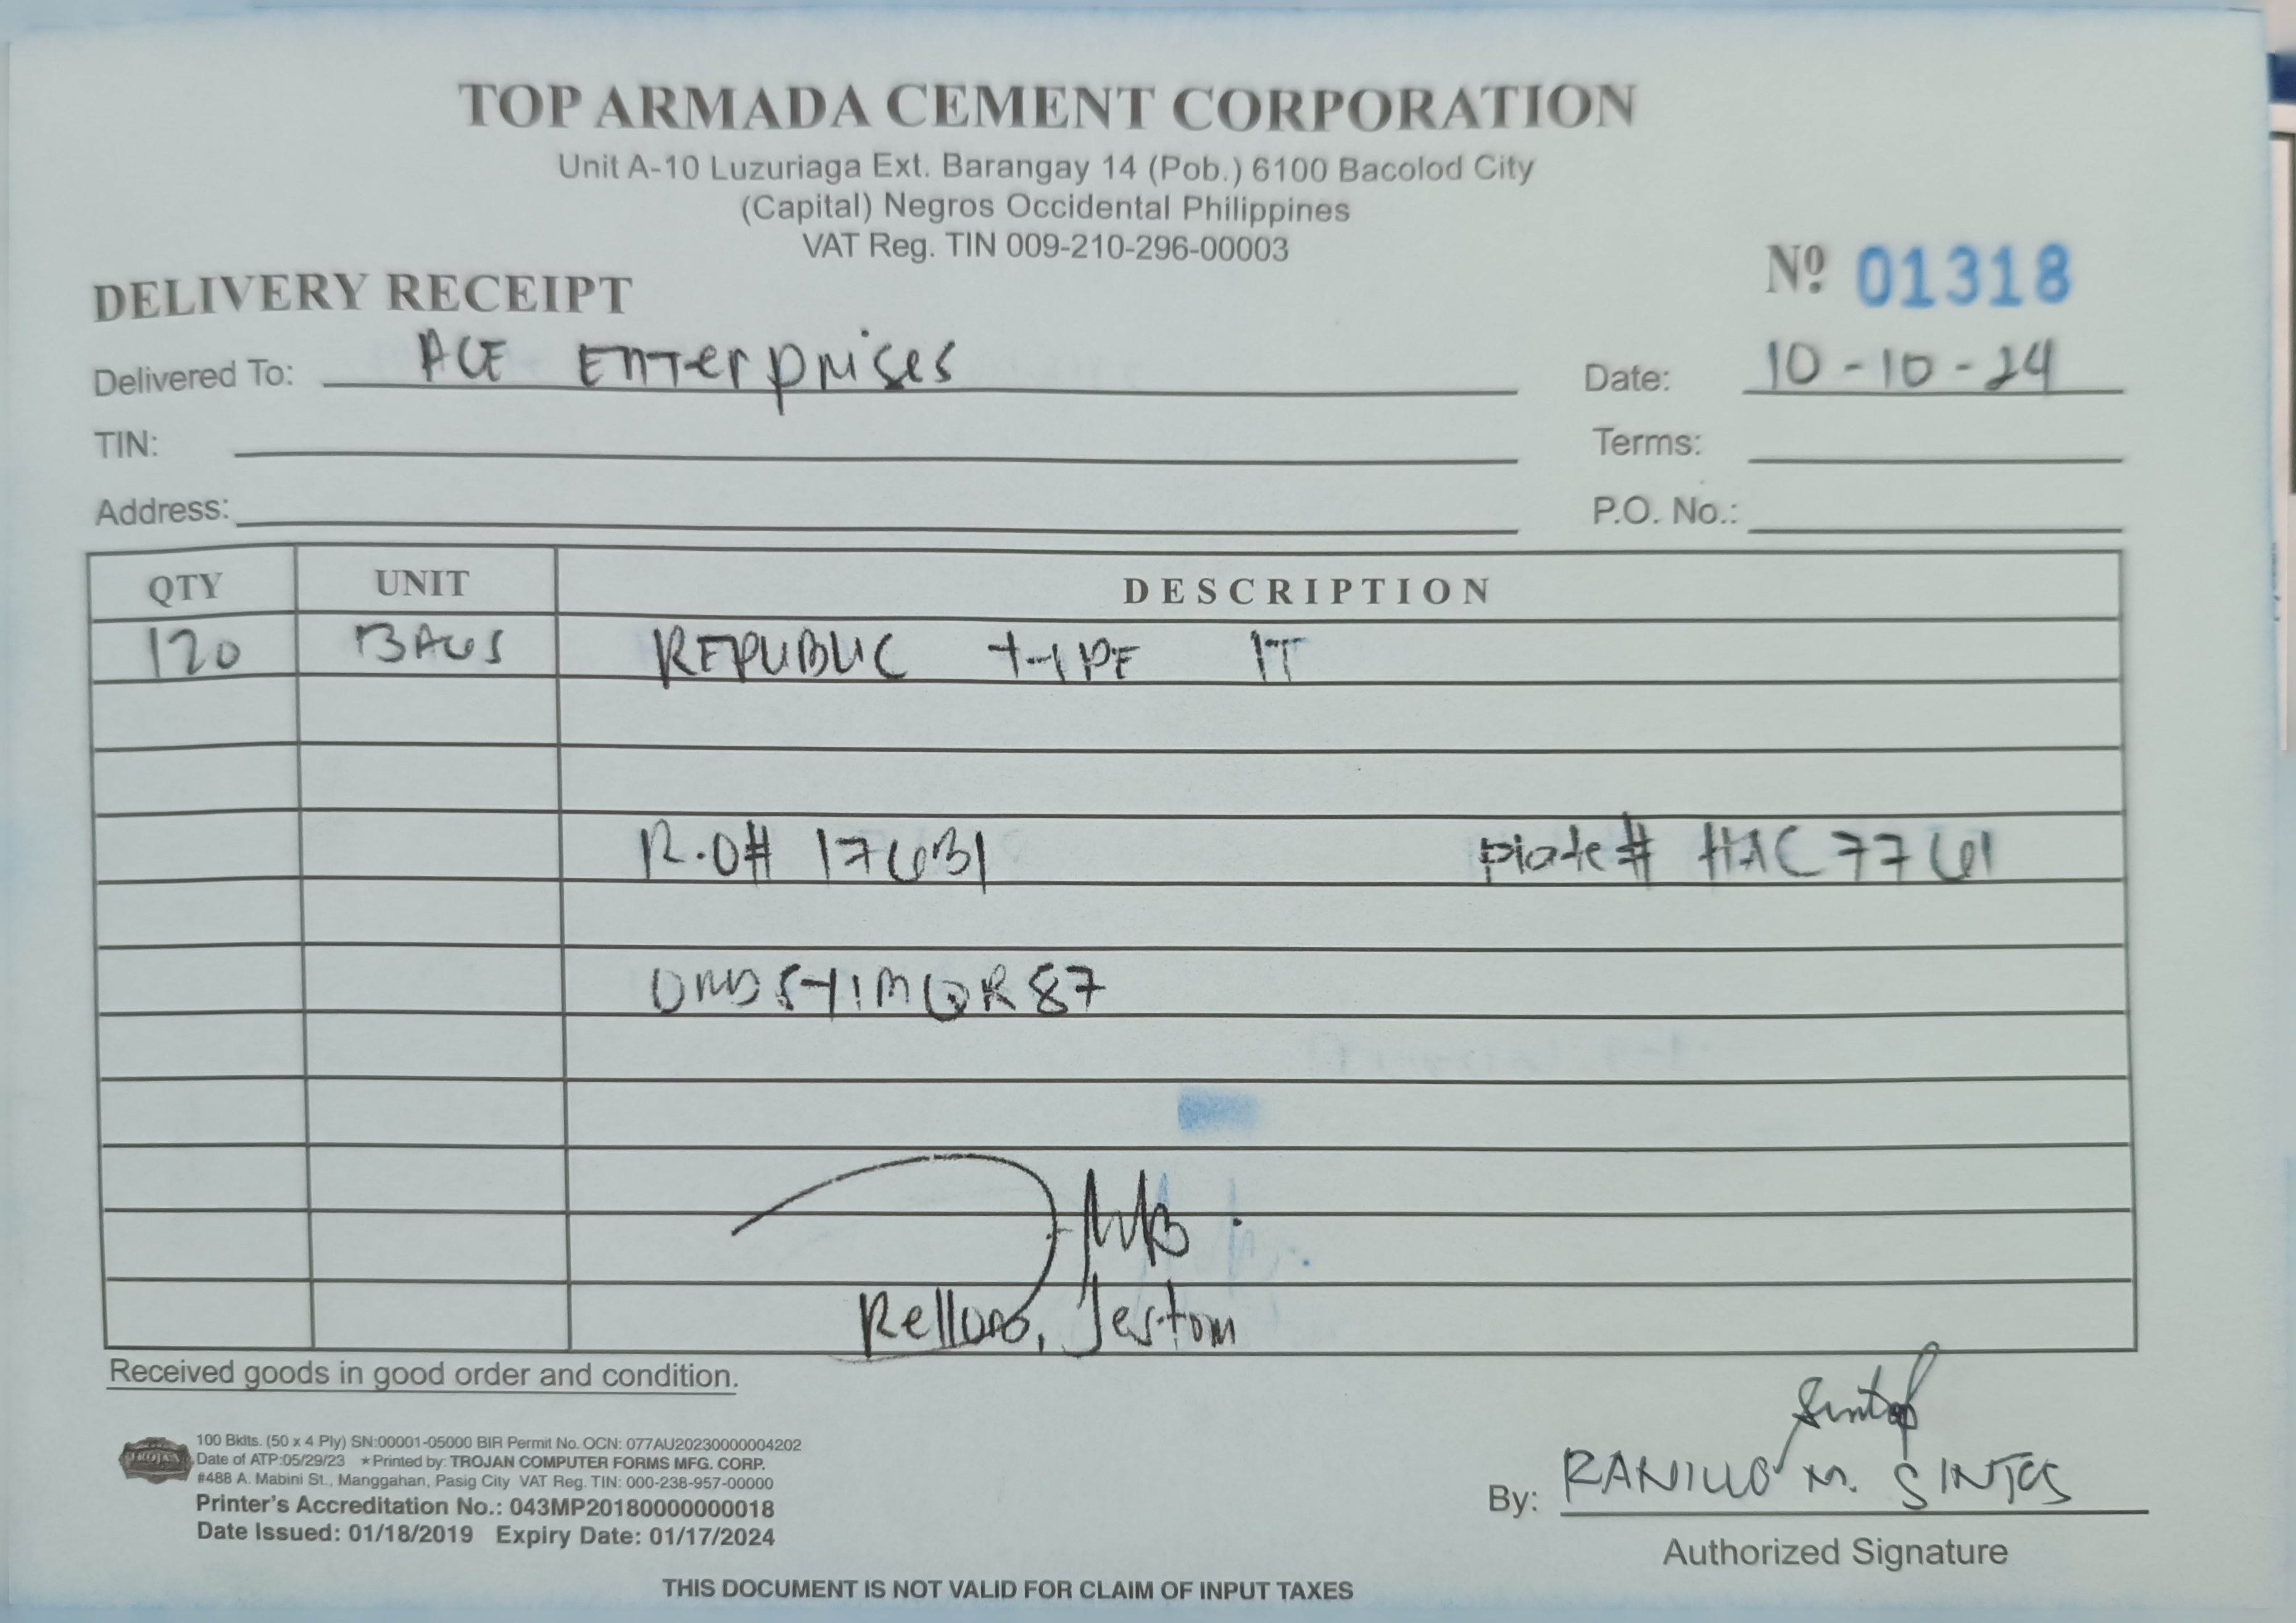 TOP ARMADA CEMENT CORPORATION
Unit A-10 Luzuriaga Ext. Barangay 14 (Pob.) 6100 Bacolod City
(Capital) Negros Occidental Philippines
VAT Reg. TIN 009-210-296-00003
Nº 01318
DELIVERY RECEIPT
Delivered To: ACE Enterprises Date: 10-10-24
TIN: Terms:
Address: P.O. No.:
QTY UNIT DESCRIPTION
120 BAGS REPUBLIC TYPE 1T
R.O# 17631 plate# HAC 7761
Jestom
Received goods in good order and condition.
TROJAN
100 Bklts. (50 x 4 Ply) SN:00001-05000 BIR Permit No. OCN: 077AU20230000004202
Date of ATP:05/29/23 ★Printed by: TROJAN COMPUTER FORMS MFG. CORP.
#488 A. Mabini St., Manggahan, Pasig City VAT Reg. TIN: 000-238-957-00000
Printer's Accreditation No.: 043MP20180000000018
Date Issued: 01/18/2019 Expiry Date: 01/17/2024
By: RANILLO M. SINTOS
Authorized Signature
THIS DOCUMENT IS NOT VALID FOR CLAIM OF INPUT TAXES